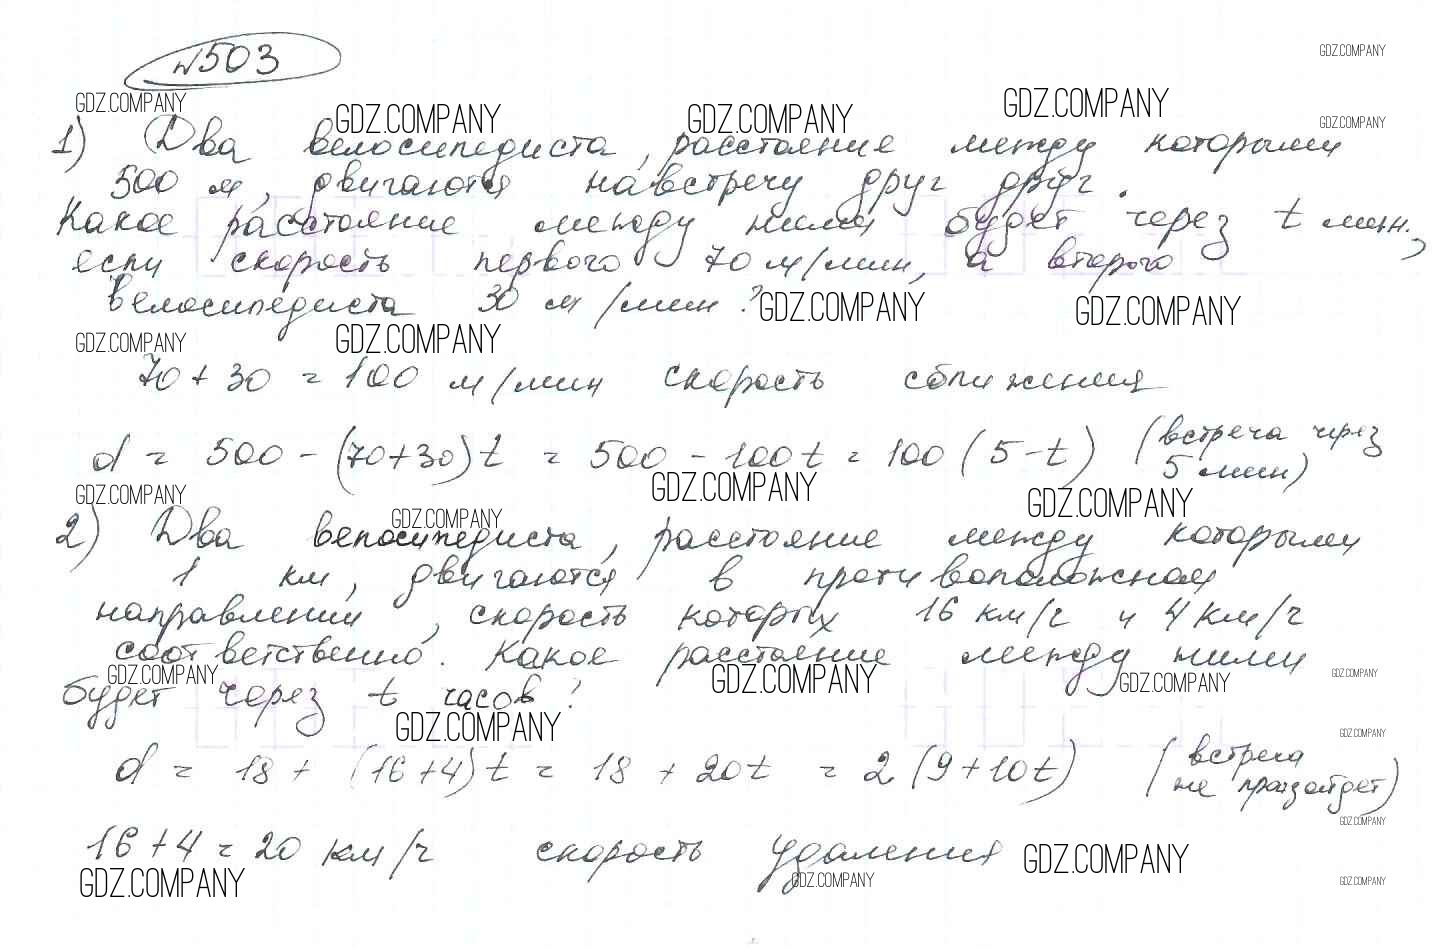 №503
GDZ.COMPANY
GDZ.COMPANY GDZ.COMPANY GDZ.COMPANY GDZ.COMPANY
GDZ.COMPANY
1) Два велосипедиста, расстояние между которыми
500 м, двигаются навстречу друг друг.
Какое расстояние между ними будет через t мин.,
если скорость первого 70 м/мин, а второго
велосипедиста 30 м/мин?
GDZ.COMPANY GDZ.COMPANY
GDZ.COMPANY GDZ.COMPANY
70 + 30 = 100 м/мин скорость сближения
d = 500 - (70+30)t = 500 - 100t = 100 (5-t) (встреча через
5 мин)
GDZ.COMPANY GDZ.COMPANY GDZ.COMPANY
GDZ.COMPANY
2) Два велосипедиста, расстояние между которыми
1 км, двигаются в противоположном
направлении, скорость которых 16 км/ч и 4 км/ч
соответственно. Какое расстояние между ними
GDZ.COMPANY GDZ.COMPANY GDZ.COMPANY GDZ.COMPANY
будет через t часов?
GDZ.COMPANY GDZ.COMPANY
d = 18 + (16+4)t = 18 + 20t = 2 (9+10t) (встреча
не произойдет)
GDZ.COMPANY
16+4 = 20 км/ч скорость удаления
GDZ.COMPANY GDZ.COMPANY GDZ.COMPANY GDZ.COMPANY